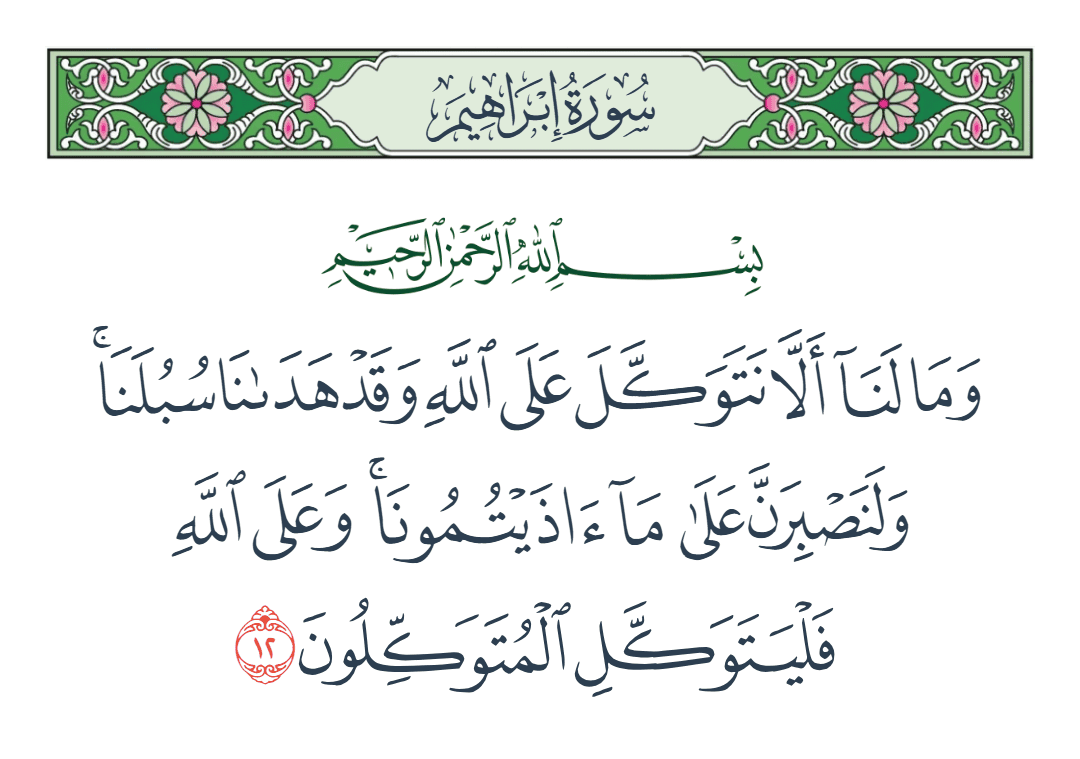 سُورَةُ إِبْرَاهِيمَ
بِسْمِ ٱللَّهِ ٱلرَّحْمَٰنِ ٱلرَّحِيمِ
وَمَا لَنَآ أَلَّا نَتَوَكَّلَ عَلَى ٱللَّهِ وَقَدْ هَدَىٰنَا سُبُلَنَاۚ
وَلَنَصْبِرَنَّ عَلَىٰ مَآ ءَاذَيْتُمُونَاۚ وَعَلَى ٱللَّهِ
فَلْيَتَوَكَّلِ ٱلْمُتَوَكِّلُونَ ١٢